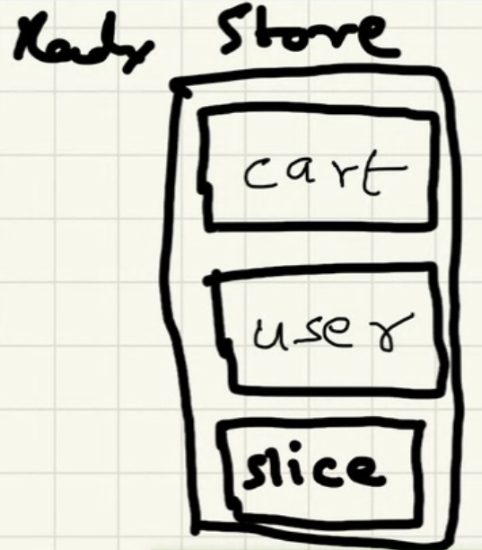 Redux Store
cart
user
slice